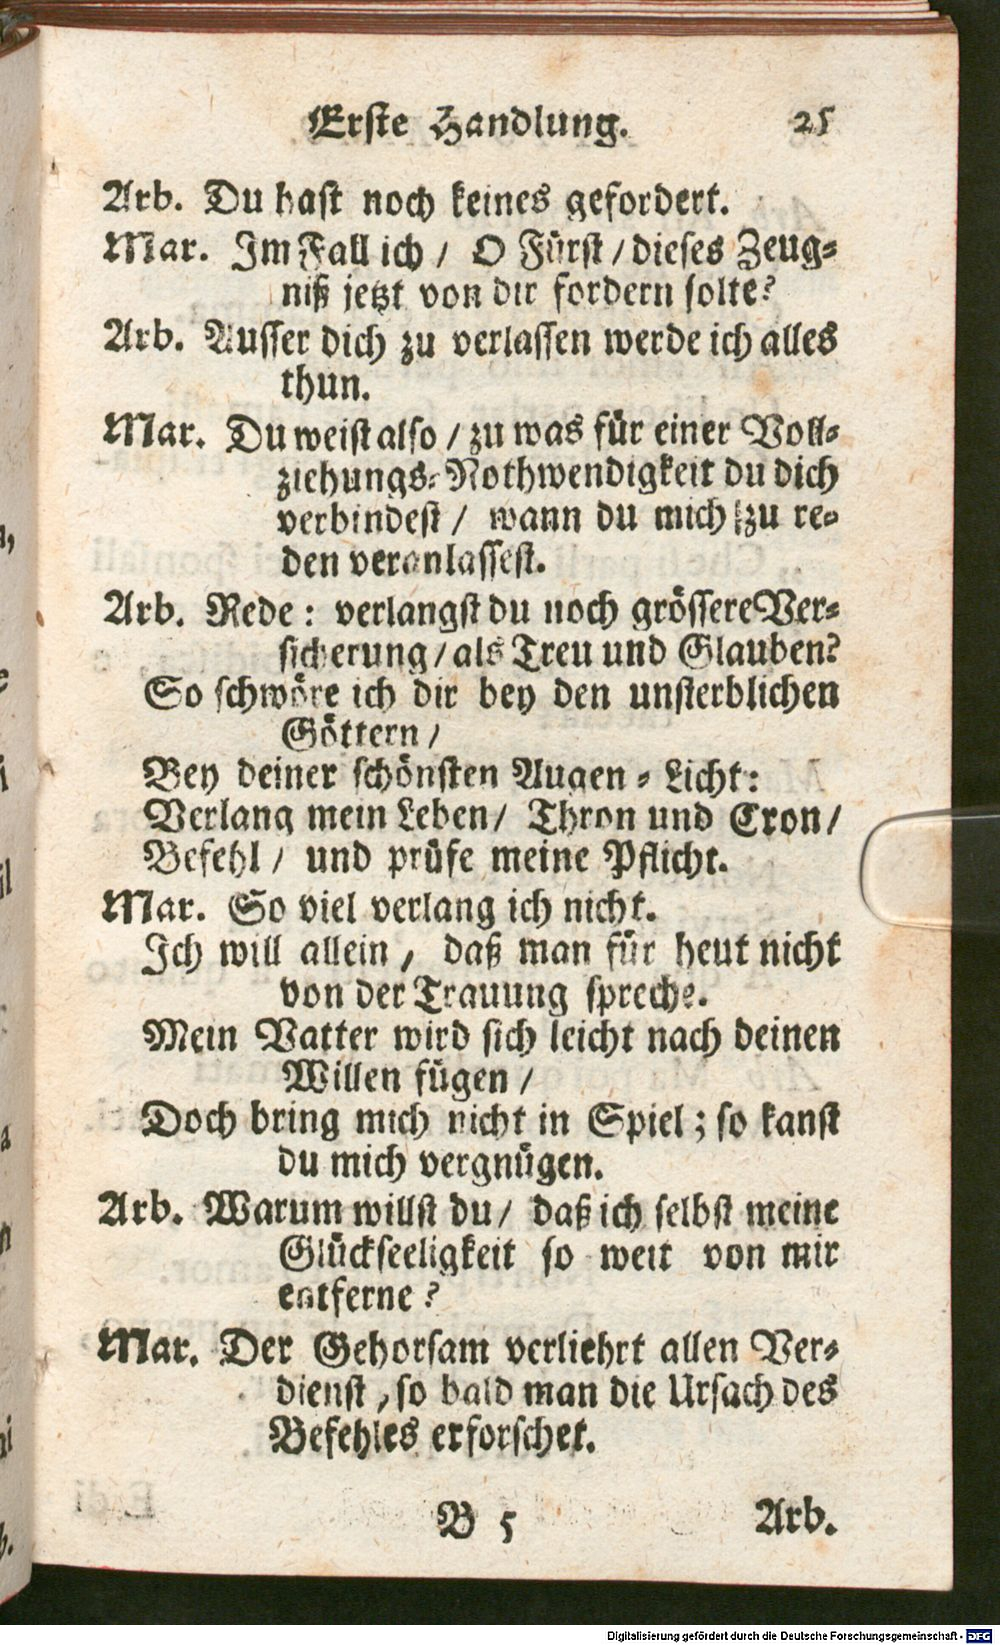 Erste Handlung. 25
Arb. Du hast noch keines gefordert.
Mar. Im Fall ich / O Fürst / dieses Zeug-
niß jetzt von dir fordern solte?
Arb. Ausser dich zu verlassen werde ich alles
thun.
Mar. Du weist also / zu was für einer Voll-
ziehungs-Nothwendigkeit du dich
verbindest / wann du mich zu re-
den veranlassest.
Arb. Rede: verlangst du noch grössere Ver-
sicherung / als Treu und Glauben?
So schwöre ich dir bey den unsterblichen
Göttern /
Bey deiner schönsten Augen-Licht:
Verlang mein Leben / Thron und Cron /
Befehl / und prüfe meine Pflicht.
Mar. So viel verlang ich nicht.
Ich will allein, daß man für heut nicht
von der Trauung spreche.
Mein Vatter wird sich leicht nach deinen
Willen fügen /
Doch bring mich nicht in Spiel; so kanst
du mich vergnügen.
Arb. Warum willst du / daß ich selbst meine
Glückseeligkeit so weit von mir
entferne?
Mar. Der Gehorsam verliehrt allen Ver-
dienst, so bald man die Ursach des
Befehles erforschet.
B 5 Arb.
Digitalisierung gefördert durch die Deutsche Forschungsgemeinschaft - DFG